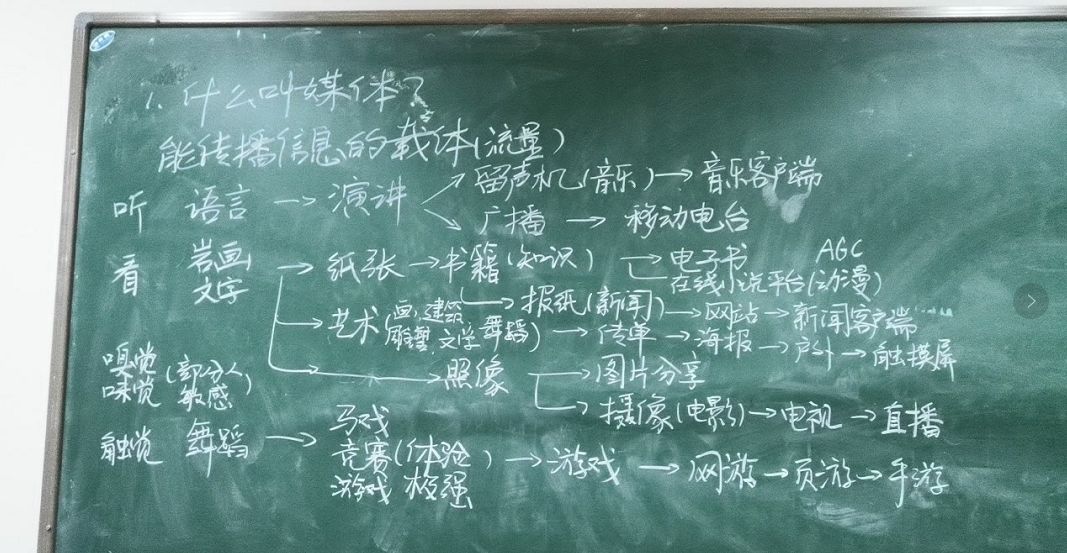 1. 什么叫媒体？
能传播信息的载体(流量)
听 语言 → 演讲 → 留声机(音乐) → 音乐客户端
→ 广播 → 移动电台
看 岩画 文字 → 纸张 → 书籍(知识) → 电子书 AGC
→ 在线小说平台(动漫)
→ 报纸(新闻) → 网站 → 新闻客户端
→ 艺术(画,建筑 雕塑 文学 舞蹈) → 传单 → 海报 → 户外 → 触摸屏
→ 照像 → 图片分享
→ 摄像(电影) → 电视 → 直播
嗅觉 味觉 (部分人敏感)
触觉 舞蹈 → 马戏
竞赛(体验极强) → 游戏 → 网游 → 页游 → 手游
游戏